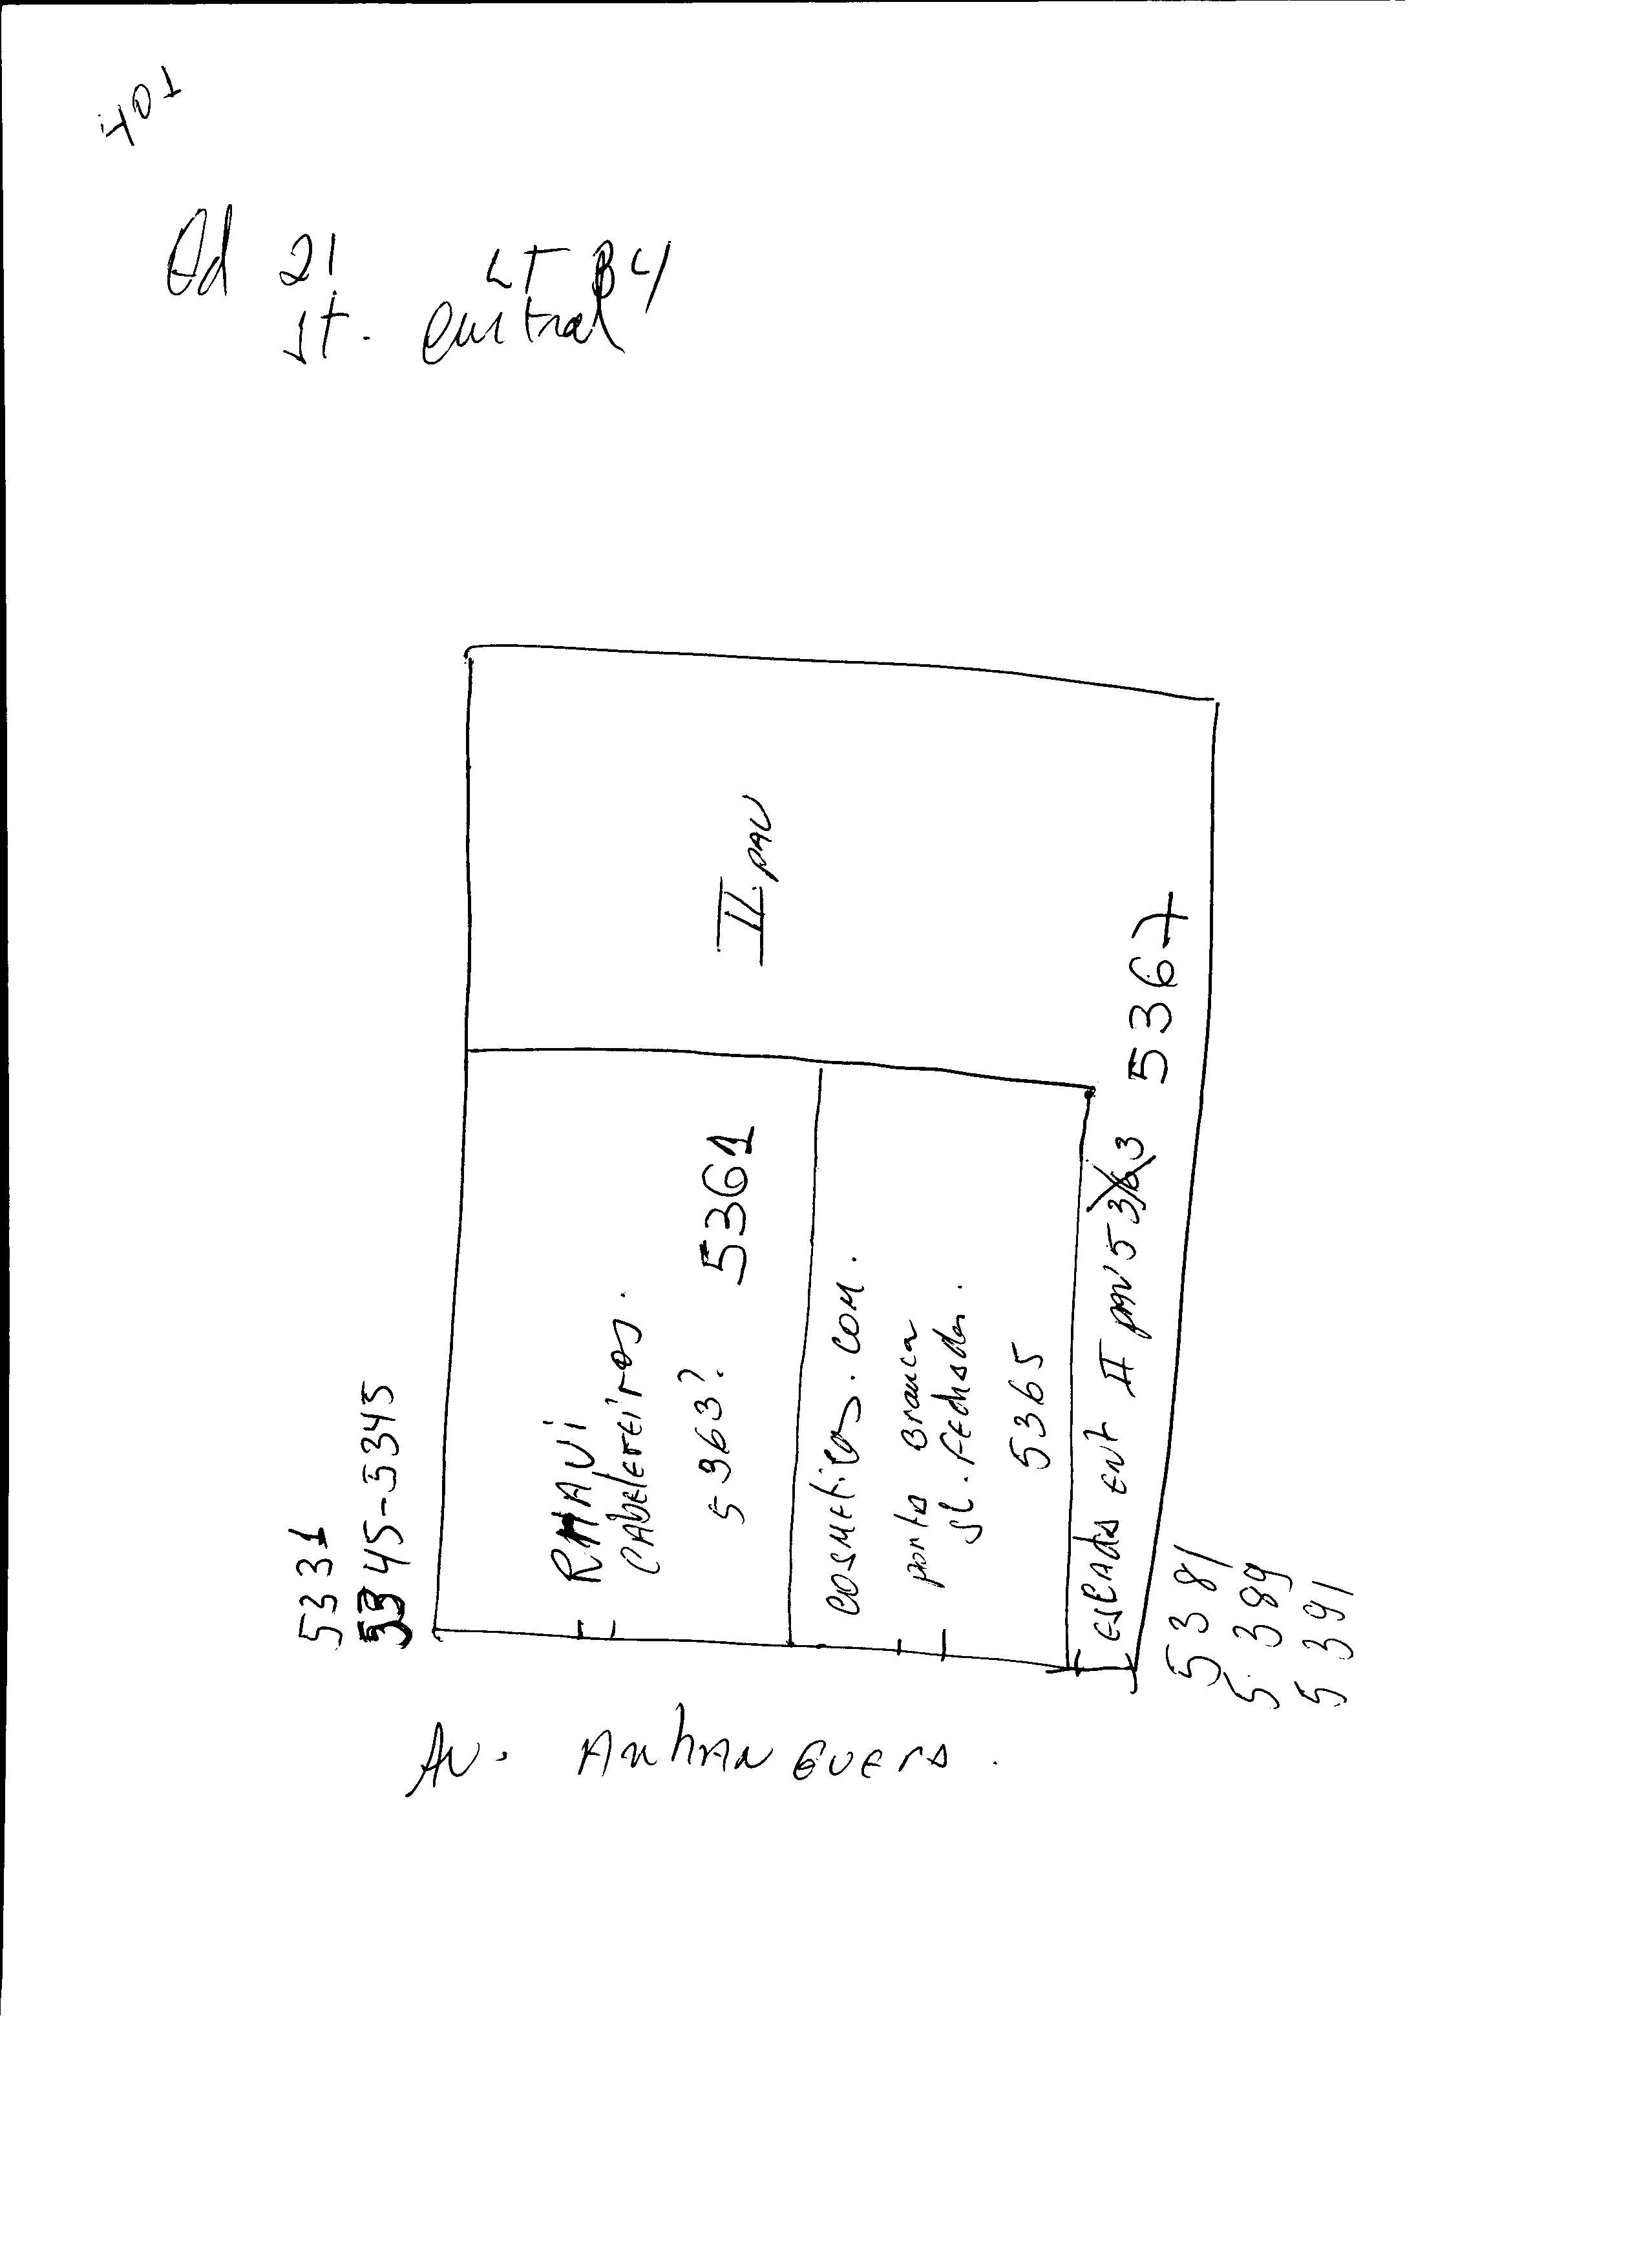 401
Qd 21 LT 84
St. Central
II pav
RHAVI
Cabeleireiros.
5363? 5361
cosmeticos.com.
porta Branca
sl. Fechada.
5365
escada ent II pav 5363 5367
5331
5345-5345
5381
5389
5391
Av. Anhanguera.